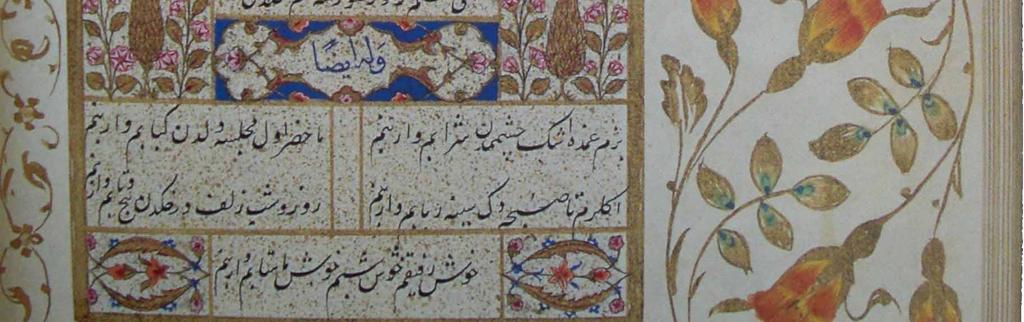 وله ایضاً
بزم غمده اشك چشممدن شرابم وار بنم
ماحضر اول مجلسه دلدن كبابم وار بنم
اكلرم تا صبحدك سینه ربابم وار بنم
روز و شب زلف رخكدن پیچ و تابم وار بنم
خوش رفیقم خوش شبم خوش ماهتابم وار بنم